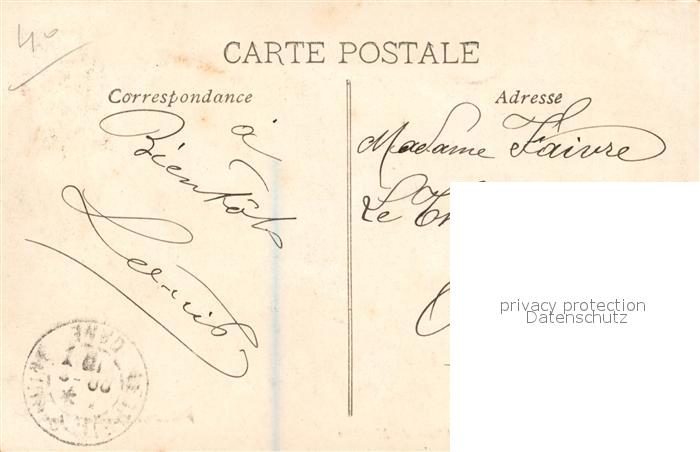 40
CARTE POSTALE
Correspondance
à
Bientôt
Louis
Adresse
Madame Faivre
Le
privacy protection
Datenschutz